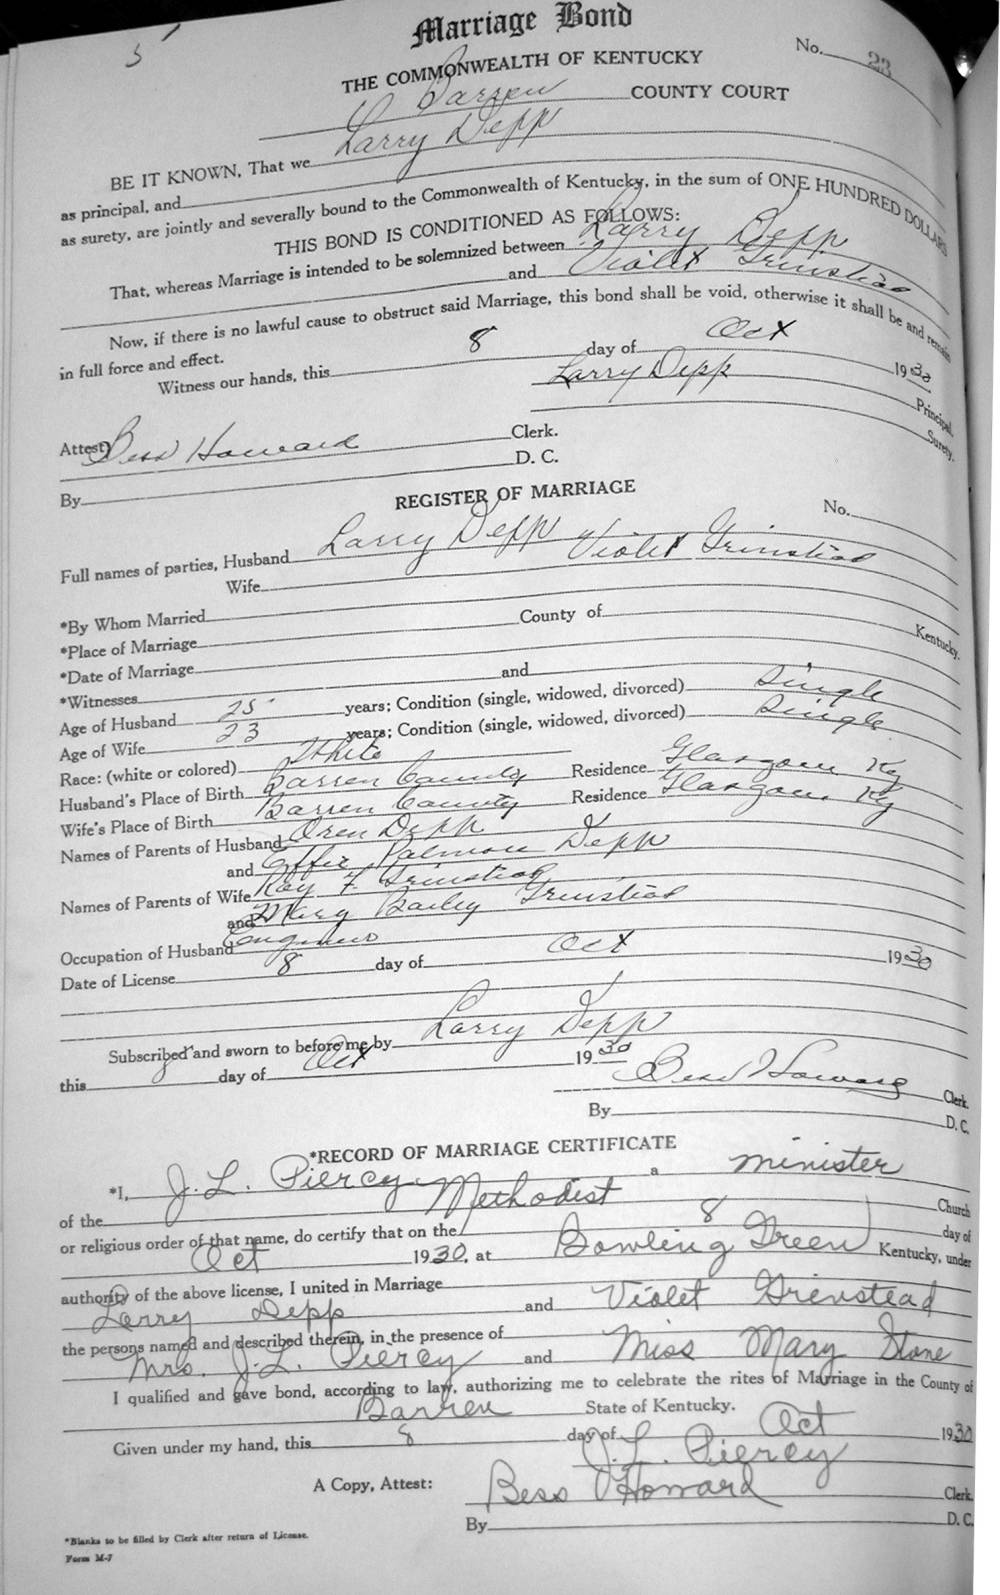 5
Marriage Bond
No. 23
THE COMMONWEALTH OF KENTUCKY
Barren COUNTY COURT
BE IT KNOWN, That we Larry Depp
as principal, and
as surety, are jointly and severally bound to the Commonwealth of Kentucky, in the sum of ONE HUNDRED DOLLARS
THIS BOND IS CONDITIONED AS FOLLOWS:
That, whereas Marriage is intended to be solemnized between Larry Depp
and Violet Grinstead
Now, if there is no lawful cause to obstruct said Marriage, this bond shall be void, otherwise it shall be and remain
in full force and effect.
Witness our hands, this 8 day of Oct 1930
Larry Depp Principal.
Surety.
Attest: Bess Howard Clerk.
By D. C.
REGISTER OF MARRIAGE
No.
Full names of parties, Husband Larry Depp
Wife Violet Grinstead
*By Whom Married
*Place of Marriage County of Kentucky.
*Date of Marriage
*Witnesses and
Age of Husband 25 years; Condition (single, widowed, divorced) Single
Age of Wife 23 years; Condition (single, widowed, divorced) Single
Race: (white or colored) White
Husband's Place of Birth Barren County Residence Glasgow Ky
Wife's Place of Birth Barren County Residence Glasgow Ky
Names of Parents of Husband Oren Depp
and Effie Palmore Depp
Names of Parents of Wife Roy F Grinstead
and Mary Bailey Grinstead
Occupation of Husband Engineer
Date of License 8 day of Oct 1930
Subscribed and sworn to before me by Larry Depp
this 8 day of Oct 1930
Bess Howard Clerk.
By D. C.
*RECORD OF MARRIAGE CERTIFICATE
*I, J. L. Piercy a minister
of the Methodist Church
or religious order of that name, do certify that on the 8 day of
Oct 1930, at Bowling Green Kentucky, under
authority of the above license, I united in Marriage
Larry Depp and Violet Grinstead
the persons named and described therein, in the presence of
Mrs. J. L. Piercy and Miss Mary Stone
I qualified and gave bond, according to law, authorizing me to celebrate the rites of Marriage in the County of
Barren State of Kentucky.
Given under my hand, this 8 day of Oct 1930
J. L. Piercy
A Copy, Attest: Bess Howard Clerk.
By D. C.
*Blanks to be filled by Clerk after return of License.
Form M-7